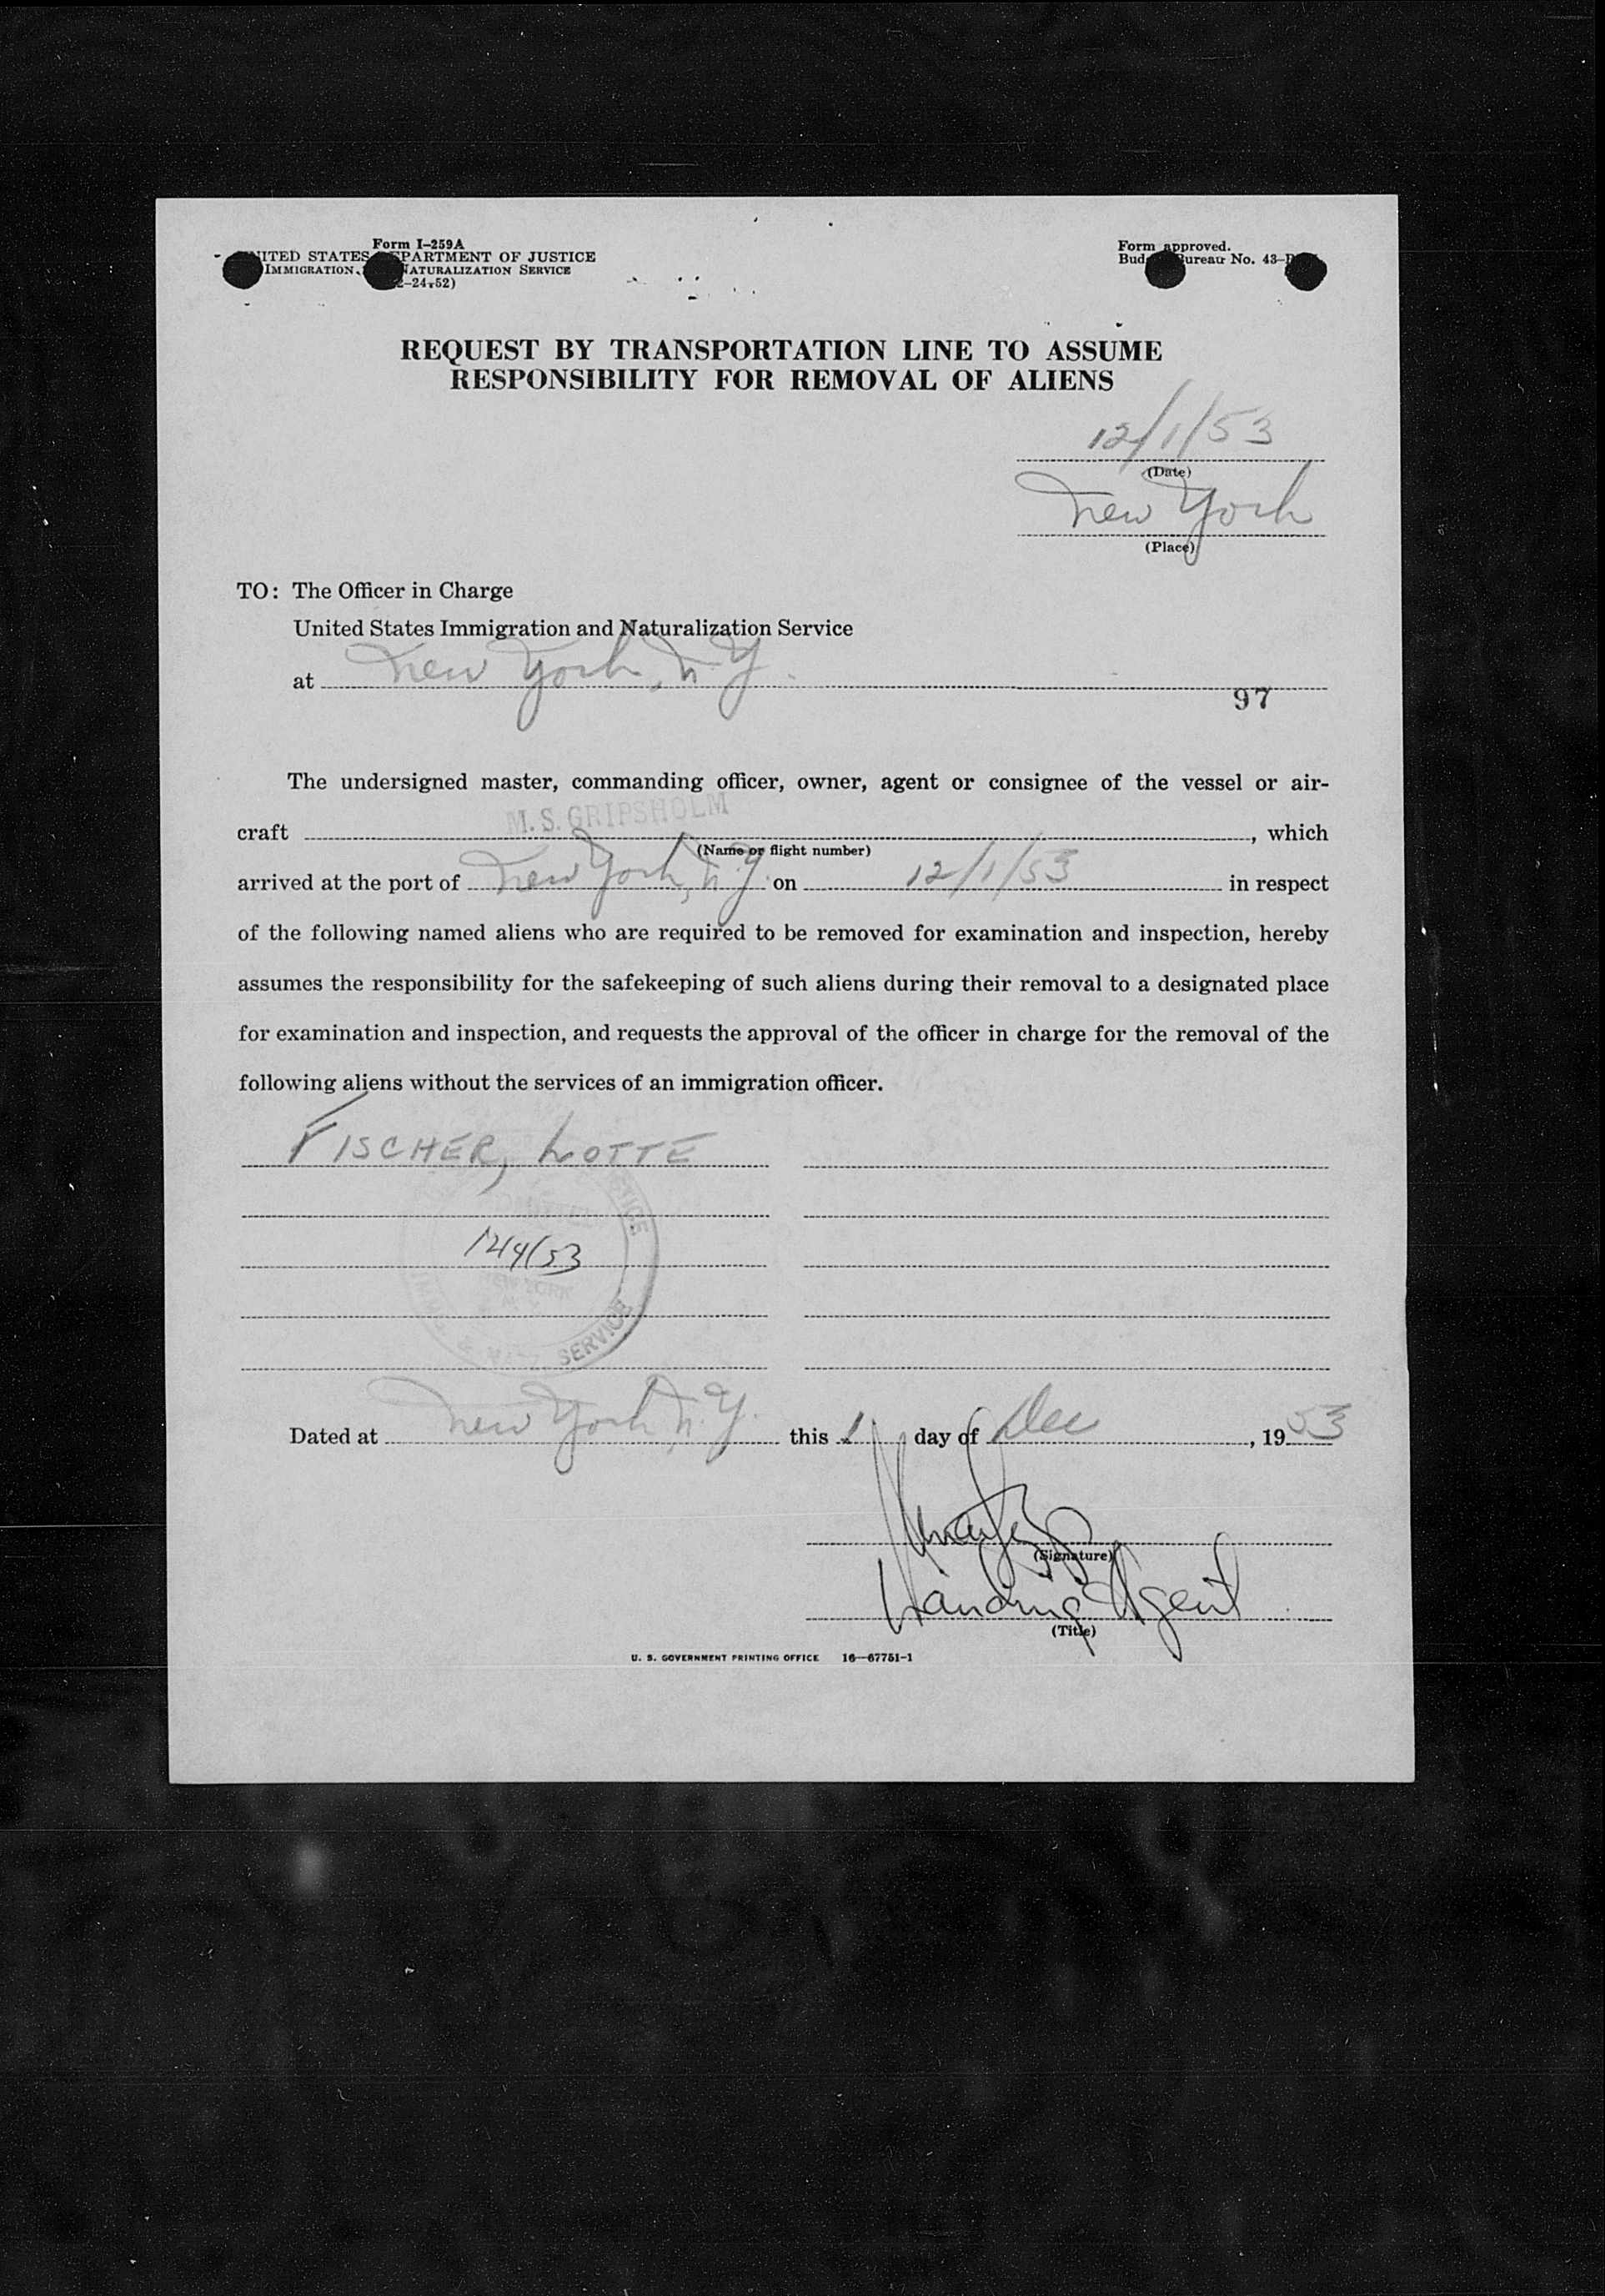 Form I-259A
UNITED STATES DEPARTMENT OF JUSTICE
IMMIGRATION NATURALIZATION SERVICE
-24-52)
Form approved.
Budget Bureau No. 43-
REQUEST BY TRANSPORTATION LINE TO ASSUME
RESPONSIBILITY FOR REMOVAL OF ALIENS
12/1/53
(Date)
New York
(Place)
TO: The Officer in Charge
United States Immigration and Naturalization Service
at New York, N.Y.
97
The undersigned master, commanding officer, owner, agent or consignee of the vessel or air-
craft M.S. GRIPSHOLM, which
(Name or flight number)
arrived at the port of New York, N.Y. on 12/1/53 in respect
of the following named aliens who are required to be removed for examination and inspection, hereby
assumes the responsibility for the safekeeping of such aliens during their removal to a designated place
for examination and inspection, and requests the approval of the officer in charge for the removal of the
following aliens without the services of an immigration officer.
FISCHER, LOTTE
12/4/53
NEW YORK
SERVICE
Dated at New York, N.Y. this 1 day of Dec, 1953
(Signature)
Landing Agent
(Title)
U. S. GOVERNMENT PRINTING OFFICE 16—67751-1